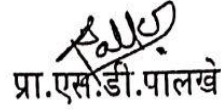 प्रा.एस.डी.पालखे